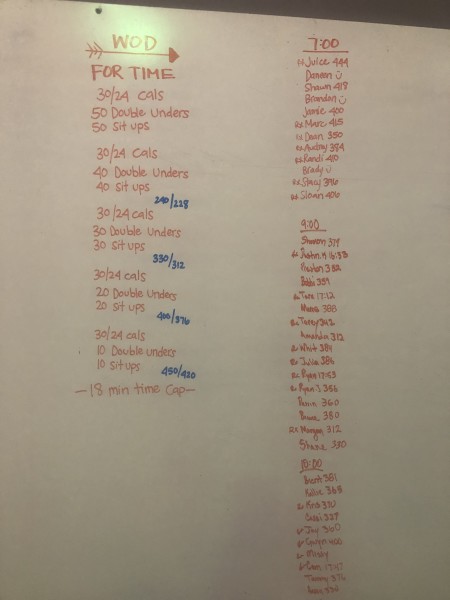 WOD
FOR TIME
30/24 Cals
50 Double Unders
50 Sit ups
30/24 Cals
40 Double Unders
40 Sit ups
240/228
30/24 cals
30 Double Unders
30 Sit ups
330/312
30/24 cals
20 Double Unders
20 Sit ups
400/376
30/24 cals
10 Double Unders
10 Sit ups
450/420
—18 min time Cap—
7:00
Juice 444
Danan
Shawn 418
Brandon
Jamie 400
Rx Marc 415
Dean 350
Rx Audrey 384
Randi 410
Brady
Rx Stacy 396
Rx Sloan 406
9:00
Sharon 379
16:53
Preston 352
Bobbi 359
Rx Tara 17:12
388
342
Amanda 312
Rx Whit 384
Rx Julie 386
Rx Ryan 17:53
Rx Ryan J 356
360
380
Rx Morgan 312
Shane 330
10:00
Brent 381
Kellie 363
Rx Kris 370
337
Rx Jay 360
Rx Gwyn 400
Rx Misty
17:47
Tammy 376